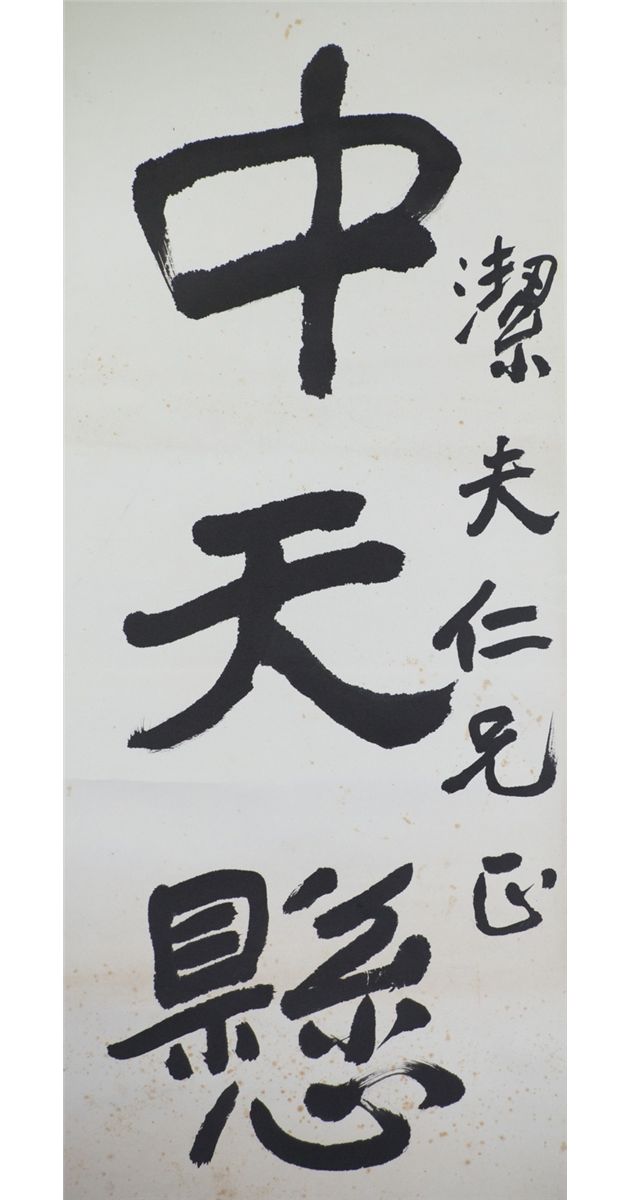 潔夫仁兄正
中天懸